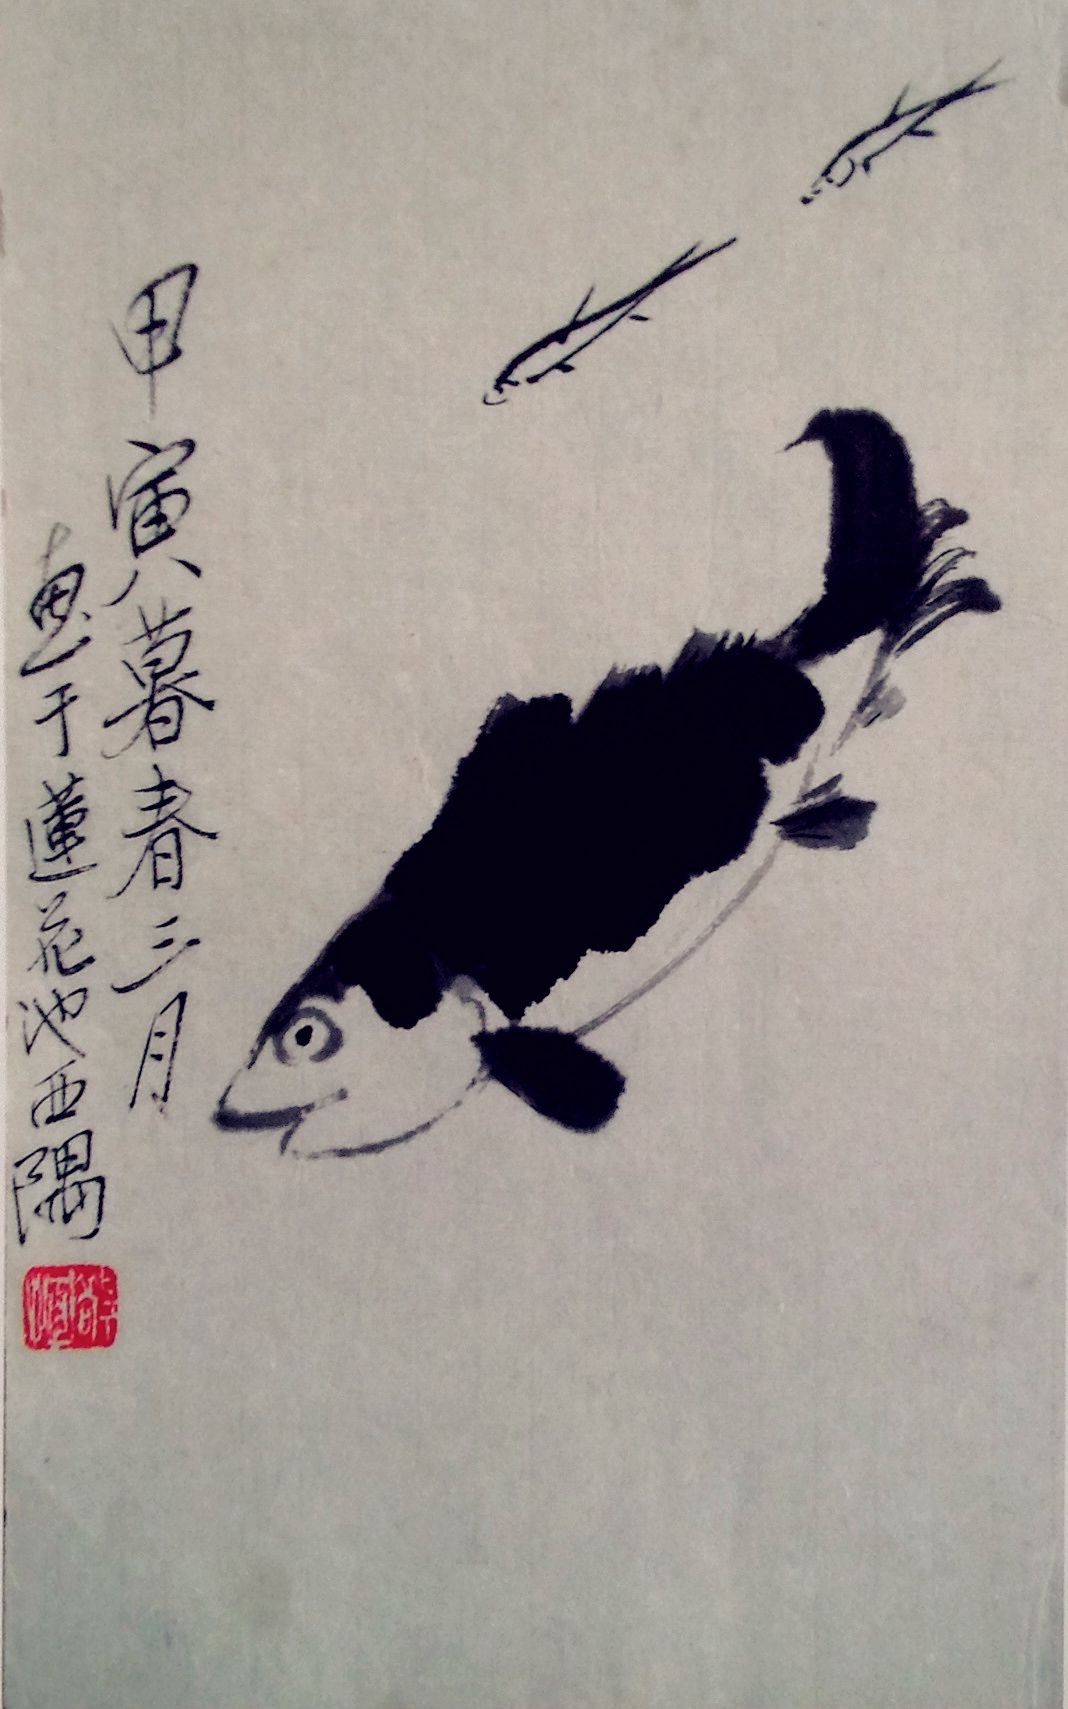 甲寅暮春三月
画于蓮花池西隅